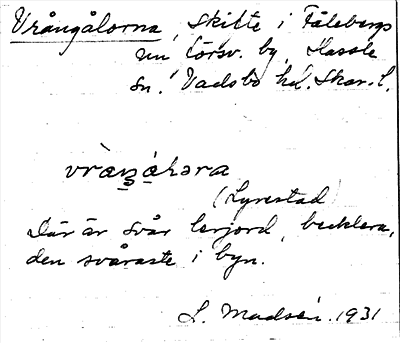 Vrångålorna, skifte i Fåleberg
nu försv. by, Hassle
sn. Vadsbo hd. Skar. l.
(Lyrestad)
Där är svår lerjord, becklera,
den svåraste i byn.
L. Madsén. 1931